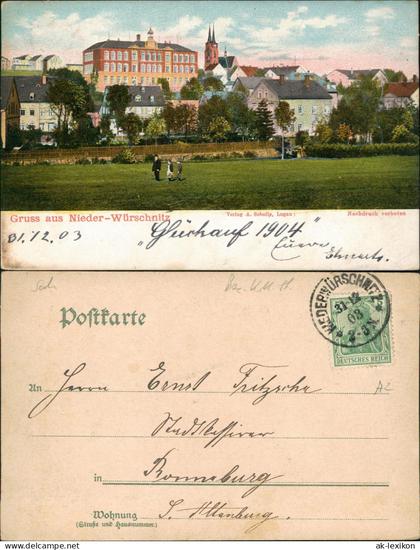 Gruss aus Nieder-Würschnitz
Verlag A. Schulip, Lugau
Nachdruck verboten
31.12.03 "Glückauf 1904"
Postkarte
NIEDERWÜRSCHNITZ
31 12
03
DEUTSCHES REICH
A2
An Herrn Ernst Fritzsche
Stadtkassirer
in Ronneburg
Wohnung S. Altenburg.
(Straße und Hausnummer)
© ak-lexikon www.ak-lexikon.de